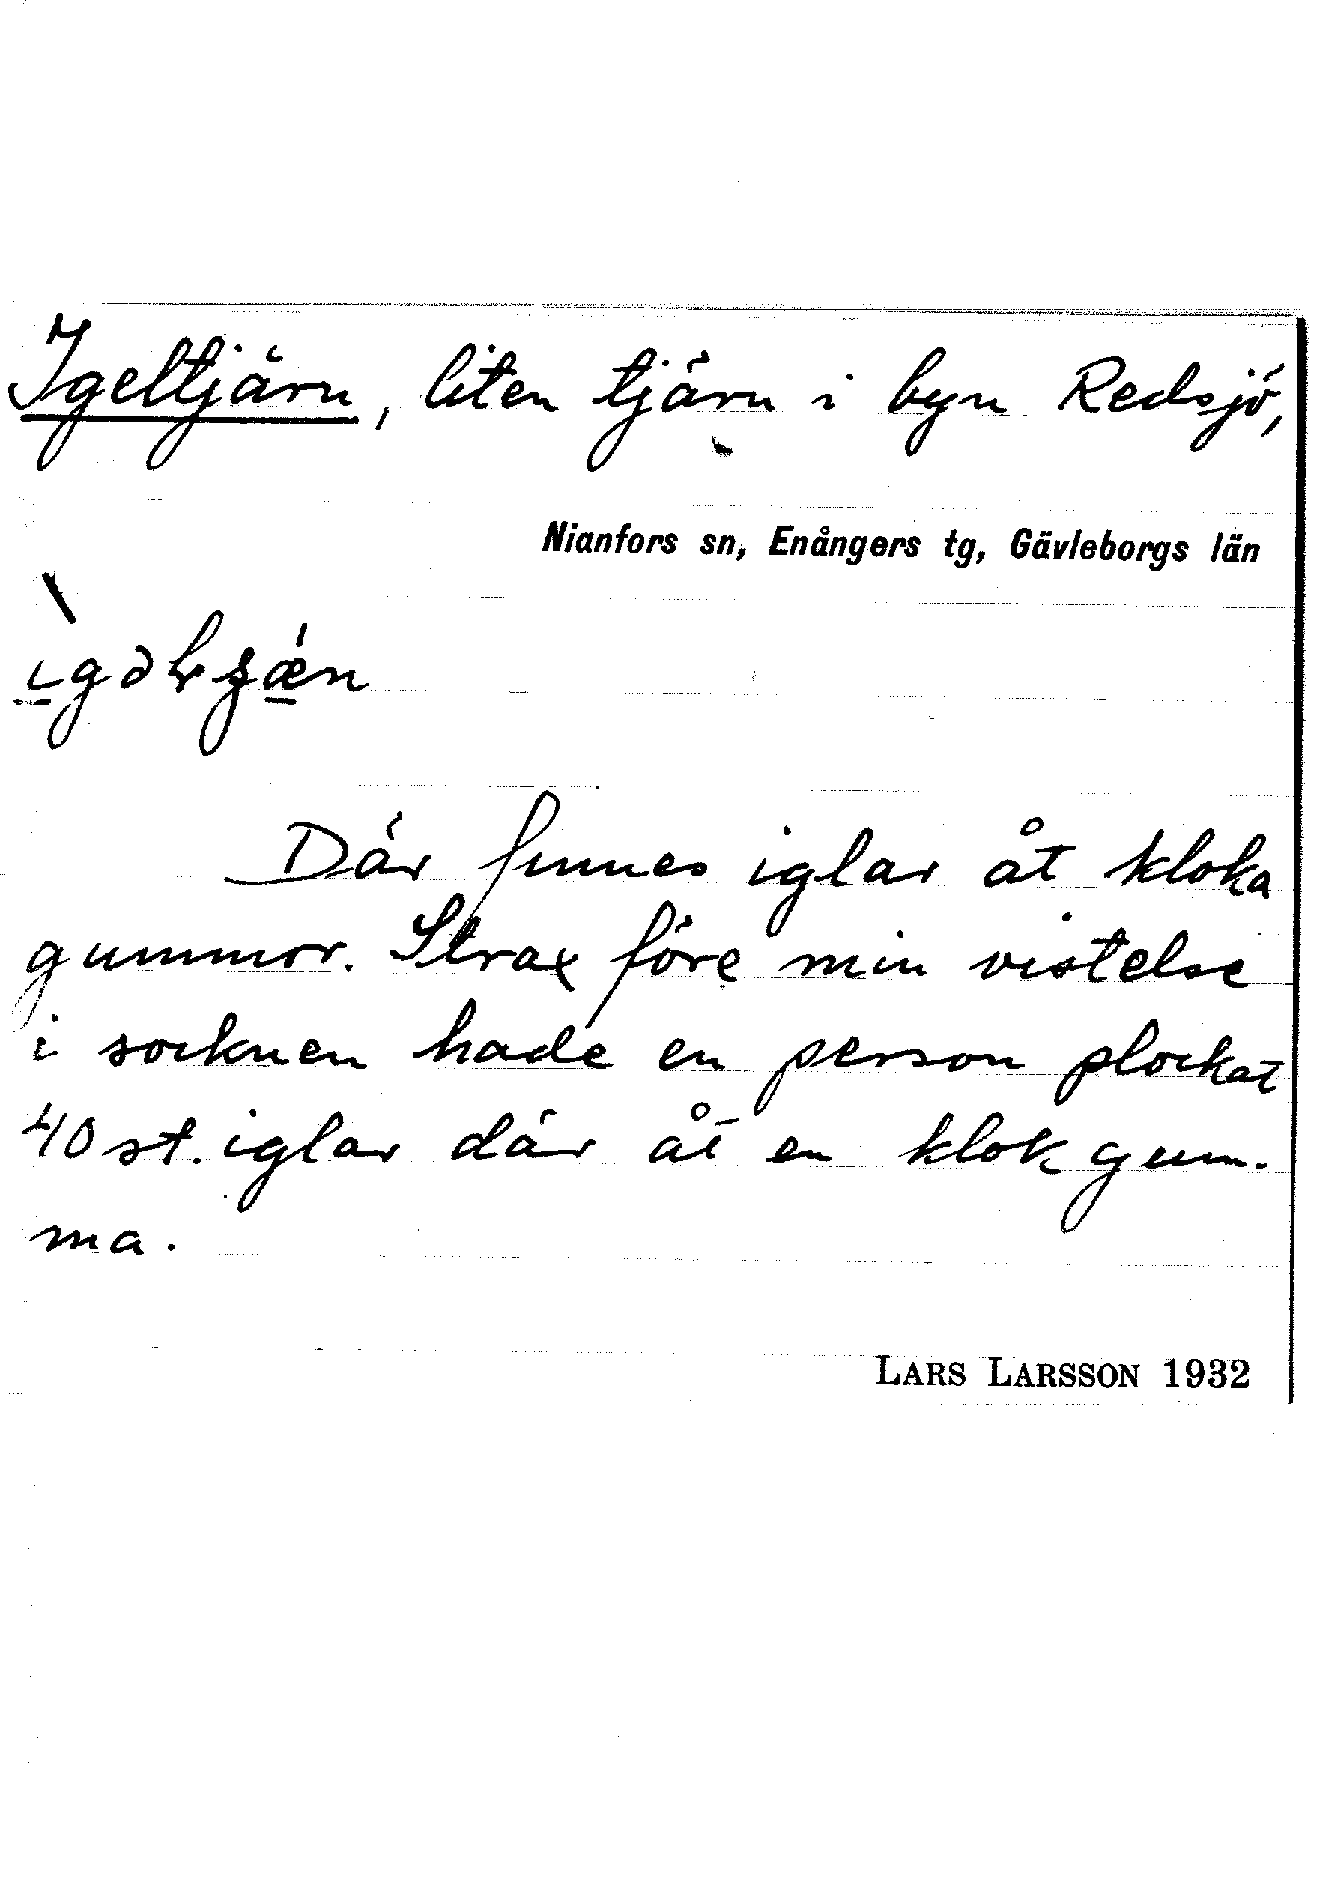 Igeltjärn, liten tjärn i byn Redsjö,
Nianfors sn, Enångers tg, Gävleborgs län
Där finnes iglar åt kloka
gummor. Strax före min vistelse
i socknen hade en person plockat
40 st. iglar där åt en klok gum-
ma.
LARS LARSSON 1932